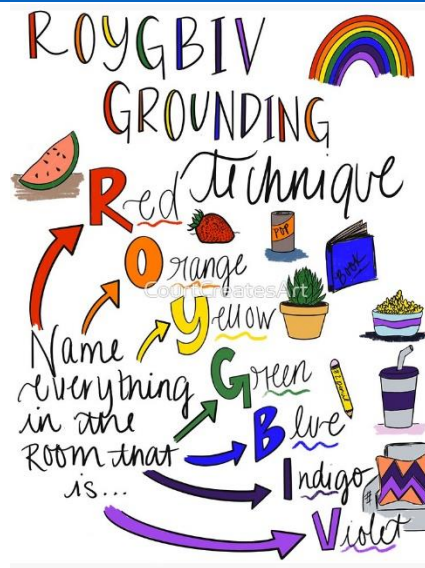 ROYGBIV
GROUNDING
Technique
Red
POP
Orange
Book
CourtCreatesArt
Yellow
Name
everything
in the
Room that
is...
Green
Blue
Indigo
Violet